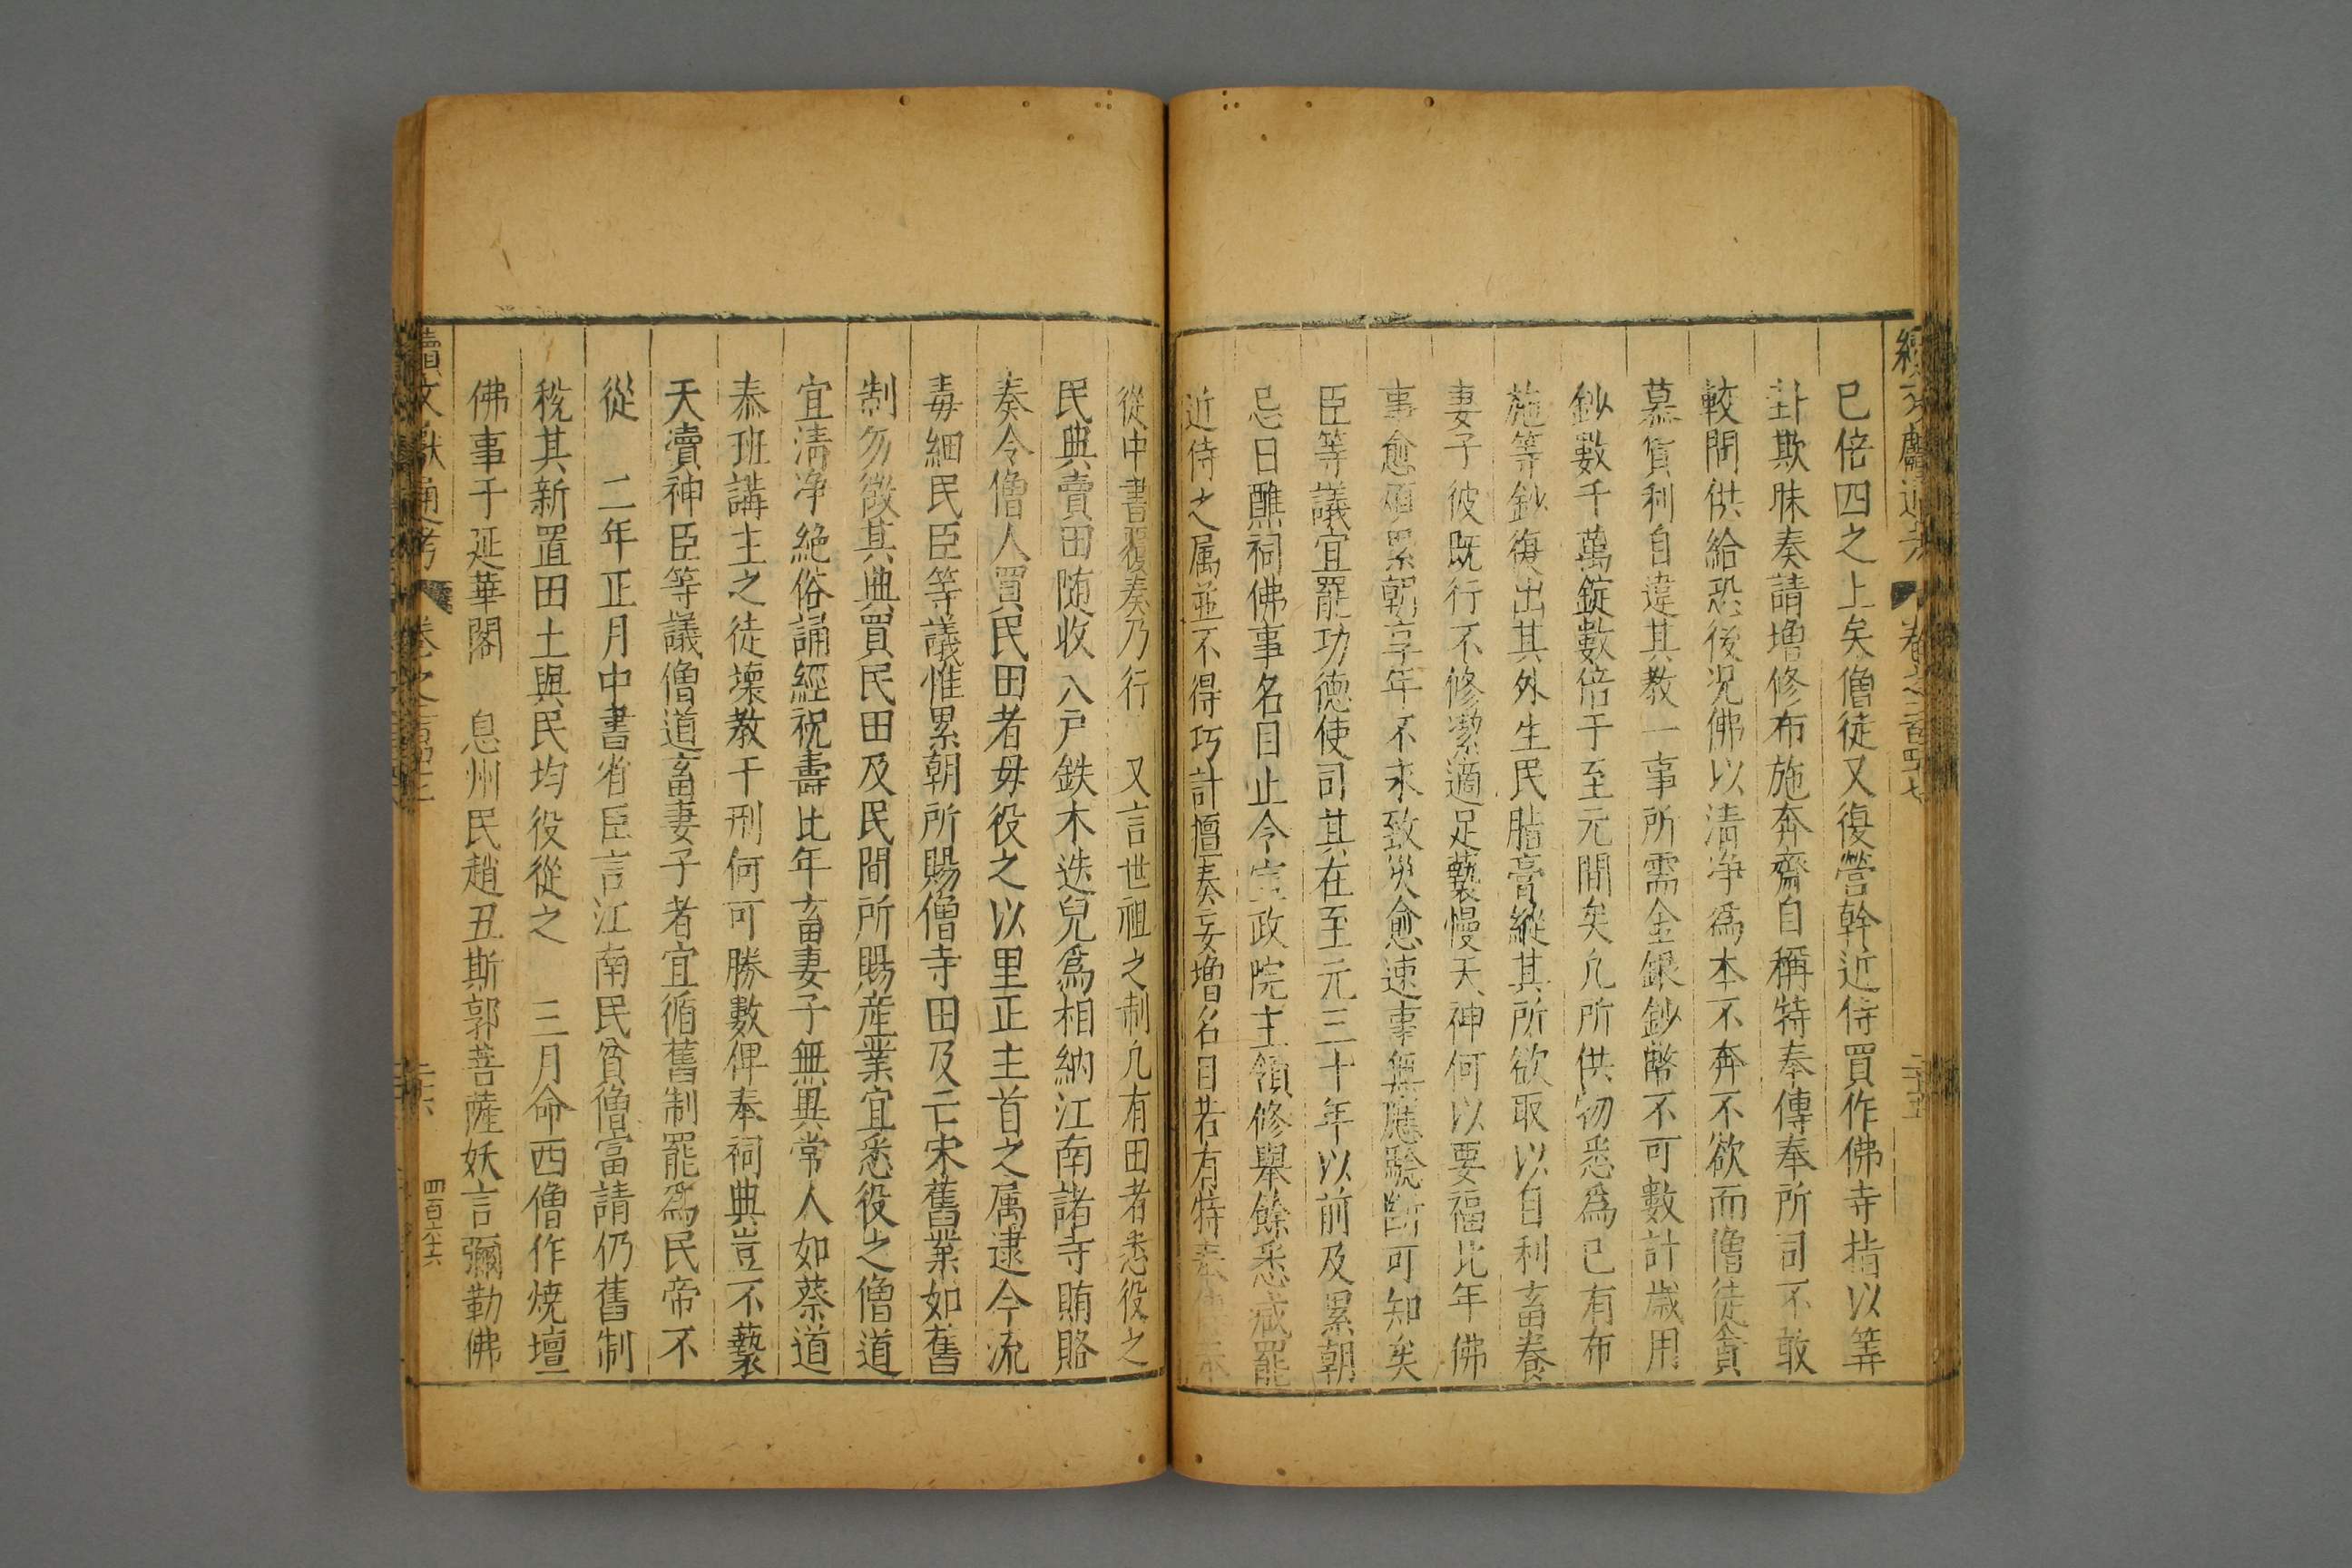 已倍四之上矣僧徒又復營幹近侍買作佛寺指以筭
卦欺昧奏請增修布施奔齋自稱特奉傳奉所司不敢
較閱供給恐後况佛以清净爲本不奔不欲而僧徒貪
慕貨利自違其教一事所需金銀鈔幣不可數計歲用
鈔數千萬錠數倍于至元間矣凢所供物悉爲已有布
施等鈔復出其外生民脂膏縱其所欲取以自利畜養
妻子彼既行不修潔適足䙝慢天神何以要福比年佛
事愈煩累朝享年不永致災愈速事無應驗斷可知矣
臣等議宜罷功德使司其在至元三十年以前及累朝
忌日醮祠佛事名目止令宣政院主領修舉餘悉减罷
近侍之属並不得巧計擅奏妄增名目若有特奉
從中書覆奏乃行 又言世祖之制凢有田者悉役之
民典賣田随收入戸鉄木迭兒爲相納江南諸寺賄賂
奏令僧人買民田者毋役之以里正主首之属逮今流
毒細民臣等議惟累朝所賜僧寺田及亡宋舊業如舊
制勿徵其典買民田及民間所賜産業宜悉役之僧道
宜清净絶俗誦經祝壽比年畜妻子無異常人如蔡道
泰班講主之徒壞教干刑何可勝數俾奉祠典豈不䙝
天瀆神臣等議僧道畜妻子者宜循舊制罷爲民帝不
從 二年正月中書省臣言江南民貧僧富請仍舊制
稅其新置田土與民均役從之 三月命西僧作燒壇
佛事于延華閣 息州民趙丑斯郭菩薩妖言彌勒佛
續文獻通考 卷之二百四十七 二十六 四百六十六